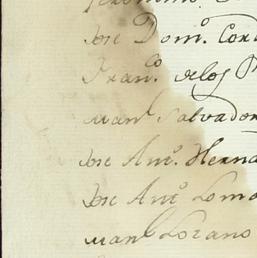 Jose Dom.º Cord
Fran.º delos
Man.l Salvador
Jose Ant.º Herna
Jose Ant.º Loma
Man.l Lozano